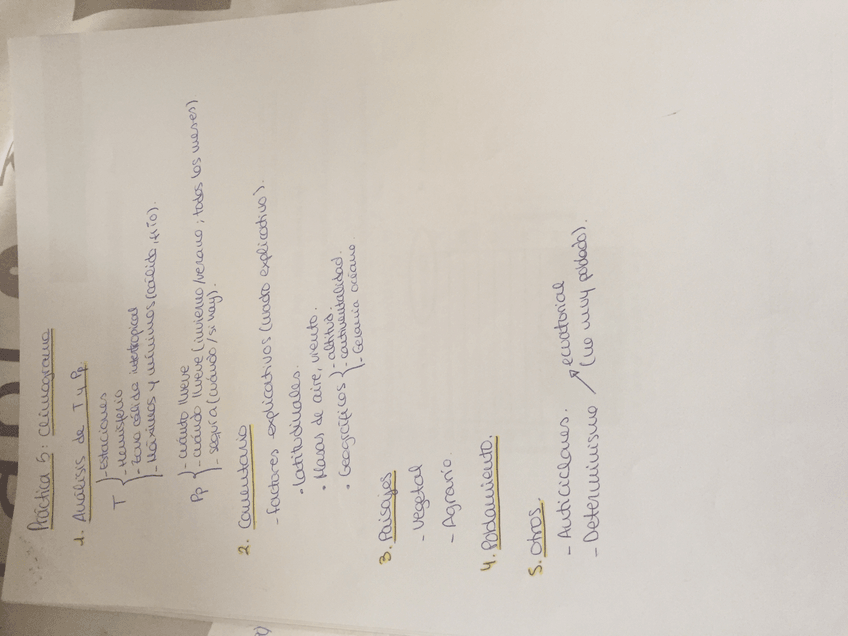 Práctica 5: Climograma
1. Análisis de T y Pp.
T
- Estaciones
- Hemisferio
- Zona cálida intertropical
- Máximos y mínimos (cálido, frío).
Pp
- cuánto llueve
- cuándo llueve (invierno/verano; todos los meses)
- sequía (cuándo/si hay).
2. Comentario
- Factores explicativos (cuadro explicativo).
• Latitudinales.
• Masas de aire, viento.
• Geográficos
- altitud
- continentalidad.
- Cercanía océano.
3. Paisajes
- Vegetal
- Agrario.
4. Poblamiento.
5. Otros.
- Anticiclones.
- Determinismo ↗ ecuatorial
(no muy poblado).